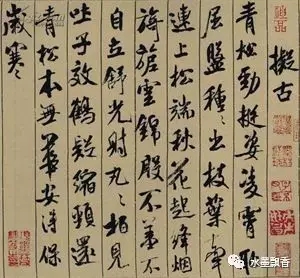 擬古
青松勁挺姿凌霄恥
屈盤種種出枝葉牽
連上松端秋花起絳烟
旖旎雲錦殷不羞不
自立舒光射丸丸柏見
吐子效鶴疑縮頸還
青松本無華安得保
歲寒
水墨飘香